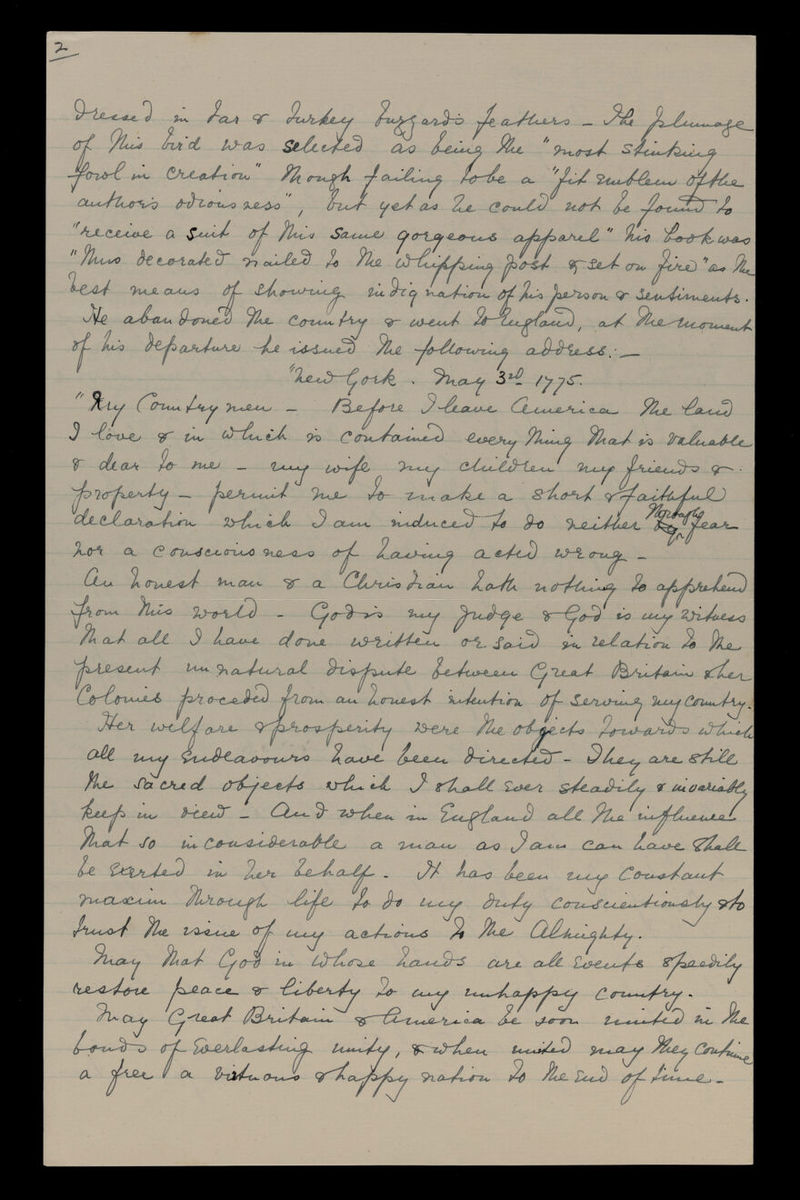 2
dressed in tar & turkey buzzards feathers - The plumage
of this bird was selected as being the "most stinking
fowl in creation" though failing to be a "fit emblem of the
author's odiousness", but yet as he could not be found to
"receive a suit of this same gorgeous apparel" his book was
"thus decorated nailed to the whipping post & set on fire" as the
best means of showing indignation of his person & sentiments.
He abandoned the country & went to England, at the moment
of his departure he issued the following address: -
"New York. May 3rd 1775.
"My Countrymen - Before I leave America the land
I love & in which is contained every thing that is valuable
& dear to me - my wife my children my friends &
property - permit me to make a short & faithful
declaration which I am induced to do neither through fear
nor a consciousness of having acted wrong -
An honest man & a Christian hath nothing to apprehend
from this world - God is my judge & God is my witness
that all I have done written or said in relation to the
present unnatural dispute between Great Britain & her
Colonies proceded from an honest intention of serving my country.
Her welfare & prosperity were the objects towards which
all my endeavours have been directed - They are still
the sacred objects which I shall ever steadily & invariably
keep in view - And when in England all the influence
that so inconsiderable a man as I am can have shall
be exerted in her behalf. It has been my constant
maxim through life to do my duty conscientiously & to
trust the issue of my actions to the Almighty.
May that God in whose hands are all events speedily
restore peace & liberty to my unhappy country.
May Great Britain & America be soon united in the
bonds of everlasting unity, & when united may they continue
a free a virtuous & happy nation to the end of time -